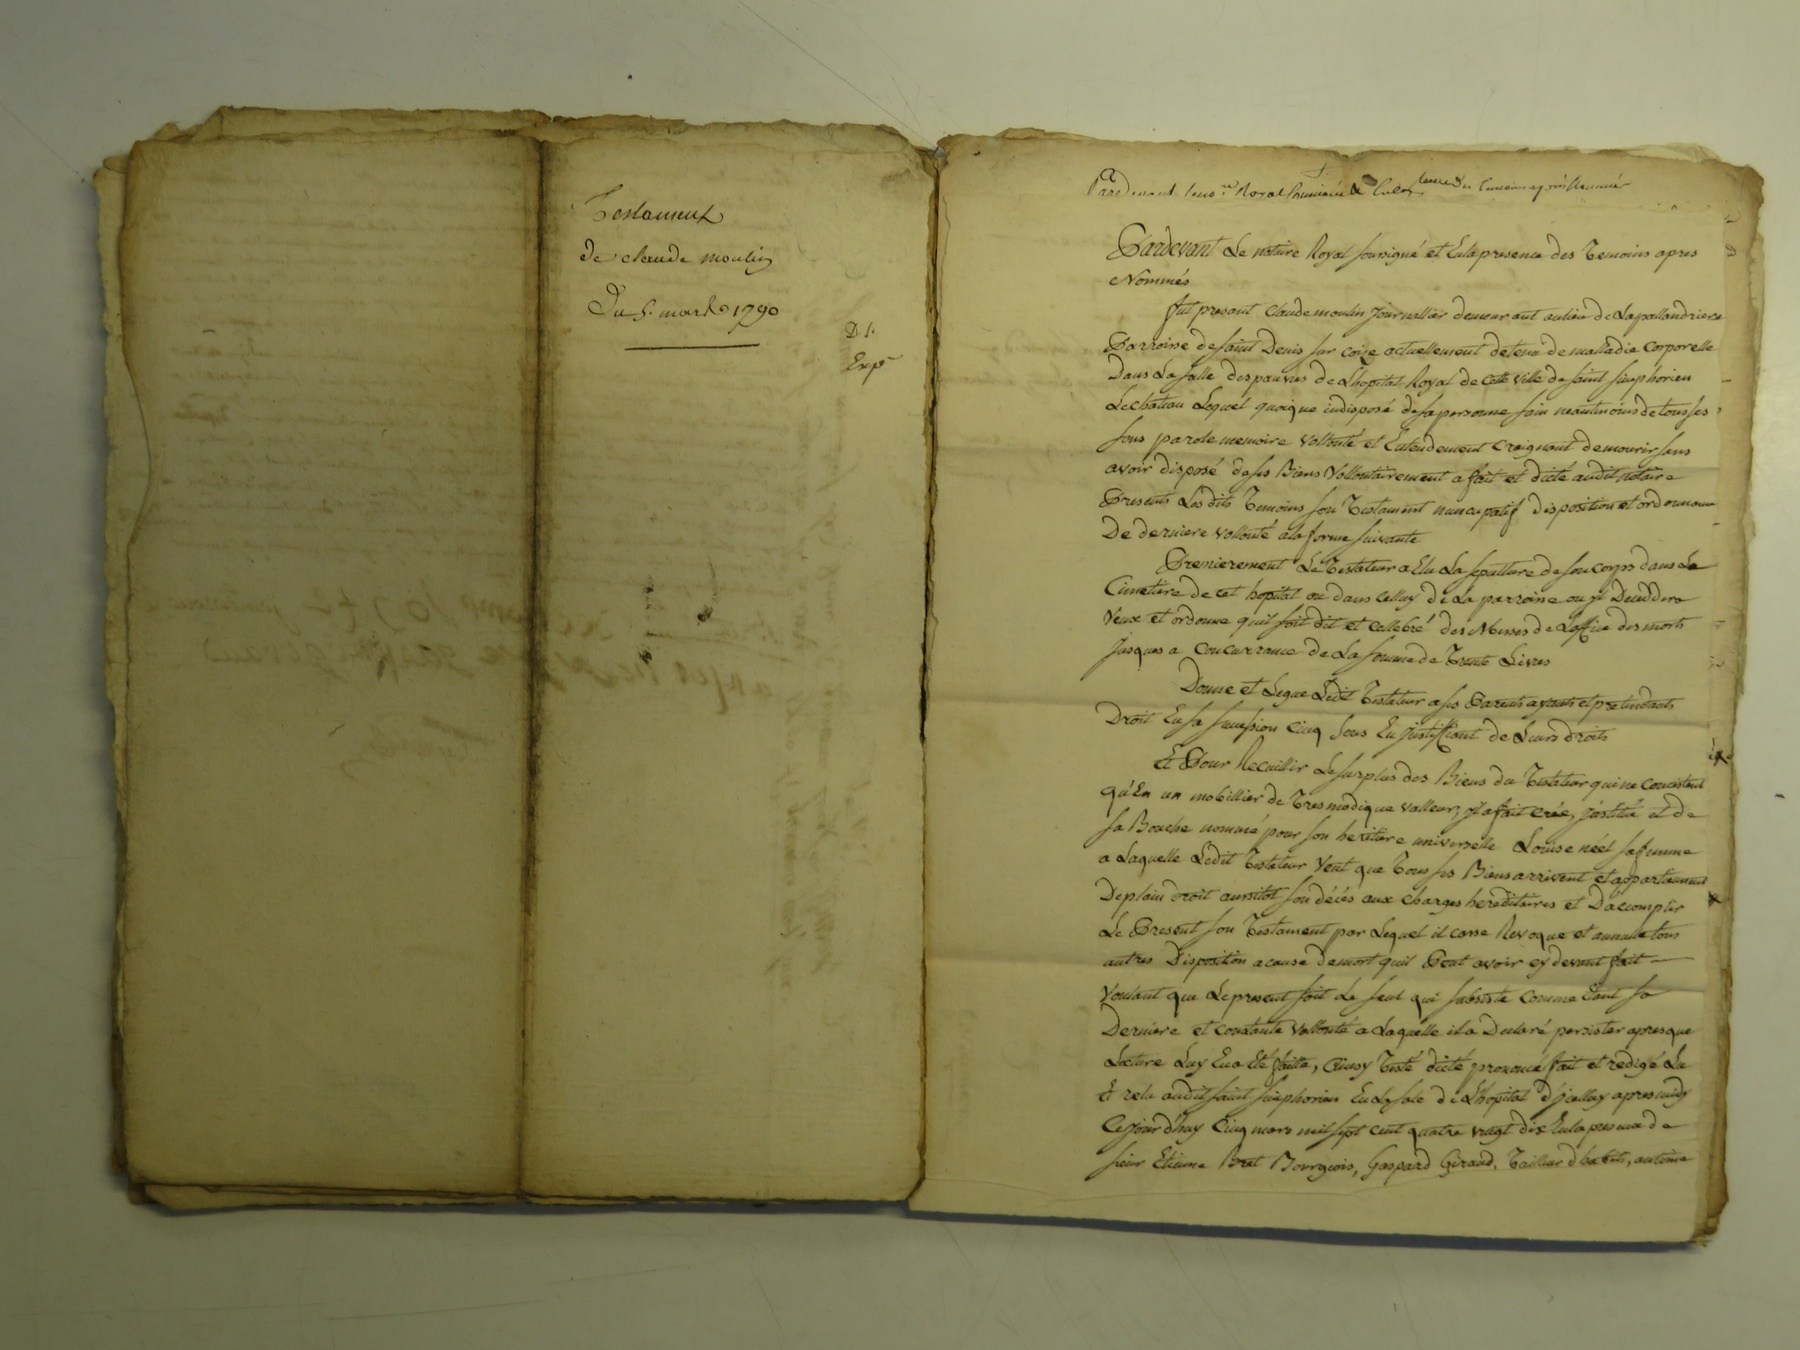 Testament
de claude moulin
Du 5. mars 1790
D. 1.
Expé
Pardevant Royal
Pardevant Le notaire Royal soussigné et En la presence des Temoins apres
Nommés
fut present Claude moulin Journallier demeurant au lieu de Lapallandriere
Parroisse de saint Denis sur coize actuellement detenu de malladie Corporelle
Dans La salle des pauvres de L'hopital Royal de Cette Ville de saint simphorien
Le chateau Lequel quoique indisposé de sa personne sain neantmoins de tous ses
sens parole memoire Vollonté et Entendement Craignant de mourir sans
avoir disposé de ses Biens Vollontairement a fait et dicté audit notaire
Presents Lesdits Temoins son Testament nuncupatif disposition et ordonnance
De derniere vollonté a la forme suivante
Premierement Le Testateur a Elu La sepulture de son Corps dans Le
Cimetiere de cet hopital ou dans Celluy de La parroisse ou jl Deceddera
Veux et ordonne quil soit dit et Cellebré des Messes de L'office des morts
Jusques a Concurrance de La somme de Trente Livres
Donne et Legue Ledit Testateur a ses Parents ayants et pretendants
Droit En sa succession Cinq sous En justiffiant de Leurs droits
Et Pour Recuillir Le surplus des Biens du Testateur qui ne Concistent
qu'En un mobillier de Tres modique valleur, jl a fait Créé, jnstitué et de
sa Bouche nommé pour son heritiere universelle Louise néel sa femme
a Laquelle Ledit Testateur Veut que Tous ses Biens arrivent et appartiennent
De plain droit aussitot son décés aux Charges hereditaires et D'accomplir
Le Present son Testament par Lequel il Casse Revoque et annulle tous
autres Disposition a cause de mort quil Peut avoir cy devant fait
Voulant que Le present soit Le seul qui subsiste Comme Etant sa
Derniere et Constante vollonté a Laquelle il a Declaré persister apres que
Lecture Luy En a Eté faitte, Ainsy Testé dicté prononcé fait et redigé Lu
Et relu audit saint simphorien En La sale de L'hopital d'jcelluy apres midy
Cejourd'huy Cinq mars mil sept cent quatre vingt dix En la presence de
sieur Etienne Bret Bourgeois, Gaspard Giraud, Tailleur d'habits, antoine